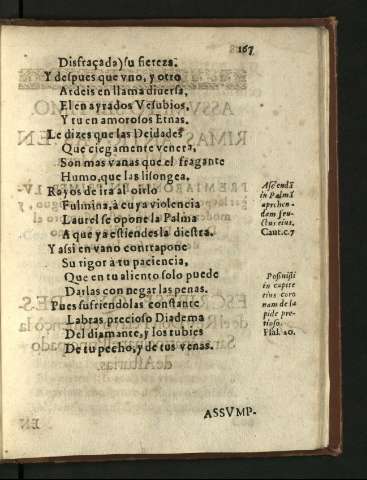 167
Disfraçada) su fiereza.
Y despues que vno, y otro
Ardeis en llama diuersa,
El en ayrados Vesubios,
Y tu en amorosos Etnas.
Le dizes que las Deidades
Que ciegamente venera,
Son mas vanas que el fragante
Humo, que las lisongea.
Rayos de ira al oirlo
Fulmina, à cuya violencia
Laurel se opone la Palma
A que ya estiendes la diestra.
Y assi en vano contrapone
Su rigor à tu paciencia,
Que en tu aliento solo puede
Darlas con negar las penas.
Pues sufriendolas constante
Labras precioso Diadema
Del diamante, y los rubies
De tu pecho, y de tus venas.
Ascendã
in Palmã
aprehen-
dam fru-
ctus eius.
Cant.c.7
Posuisti
in capite
eius coro
nam de la
pide pre-
tioso.
Psal. 20.
ASSVMP-